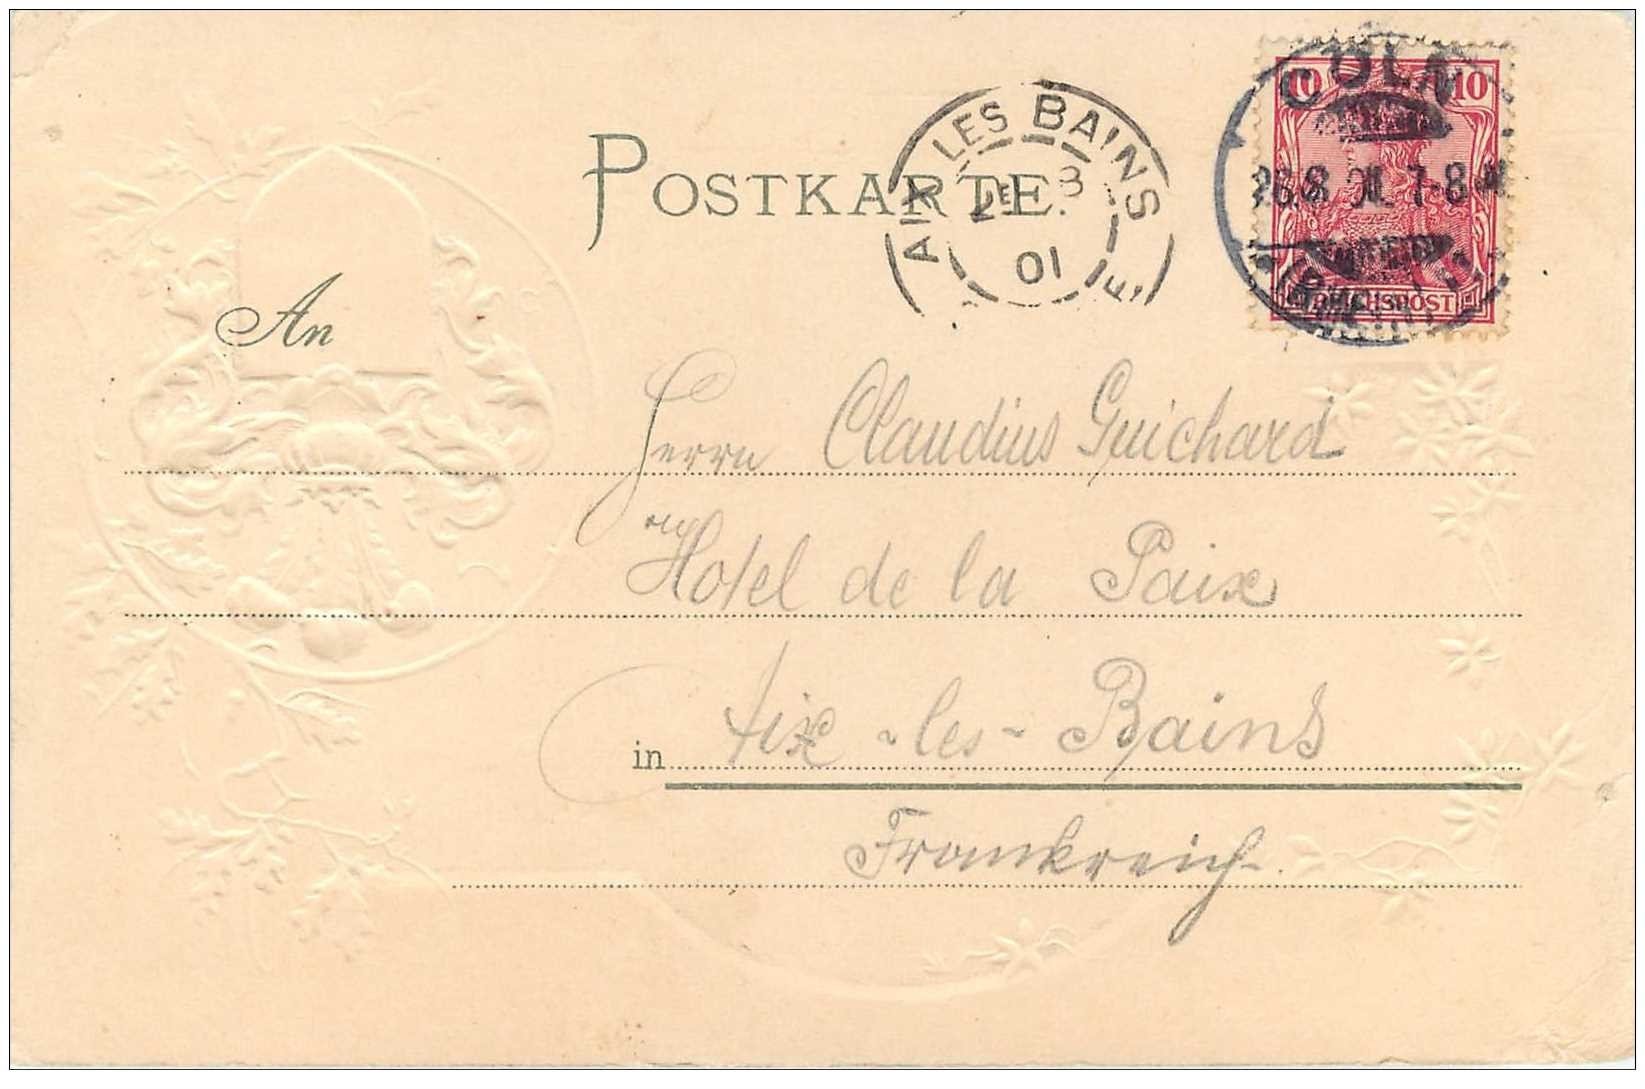 POSTKARTE.
AIX LES BAINS
8
01
CÖLN
10 10
7-8
REICHSPOST
An
Herrn Claudius Guichard
Hotel de la Paix
in Aix-les-Bains
Frankreich.